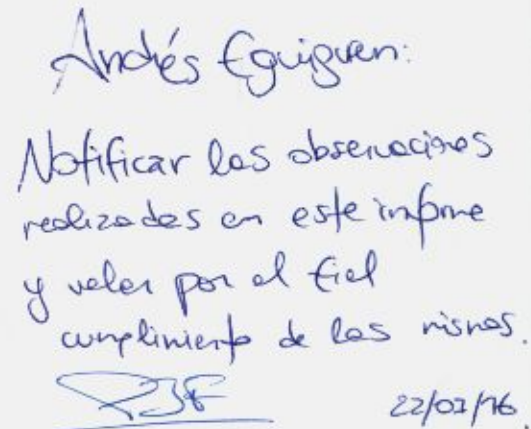 Andrés Eguiguren:
Notificar las observaciones
realizadas en este informe
y velar por el fiel
cumplimiento de las mismas.